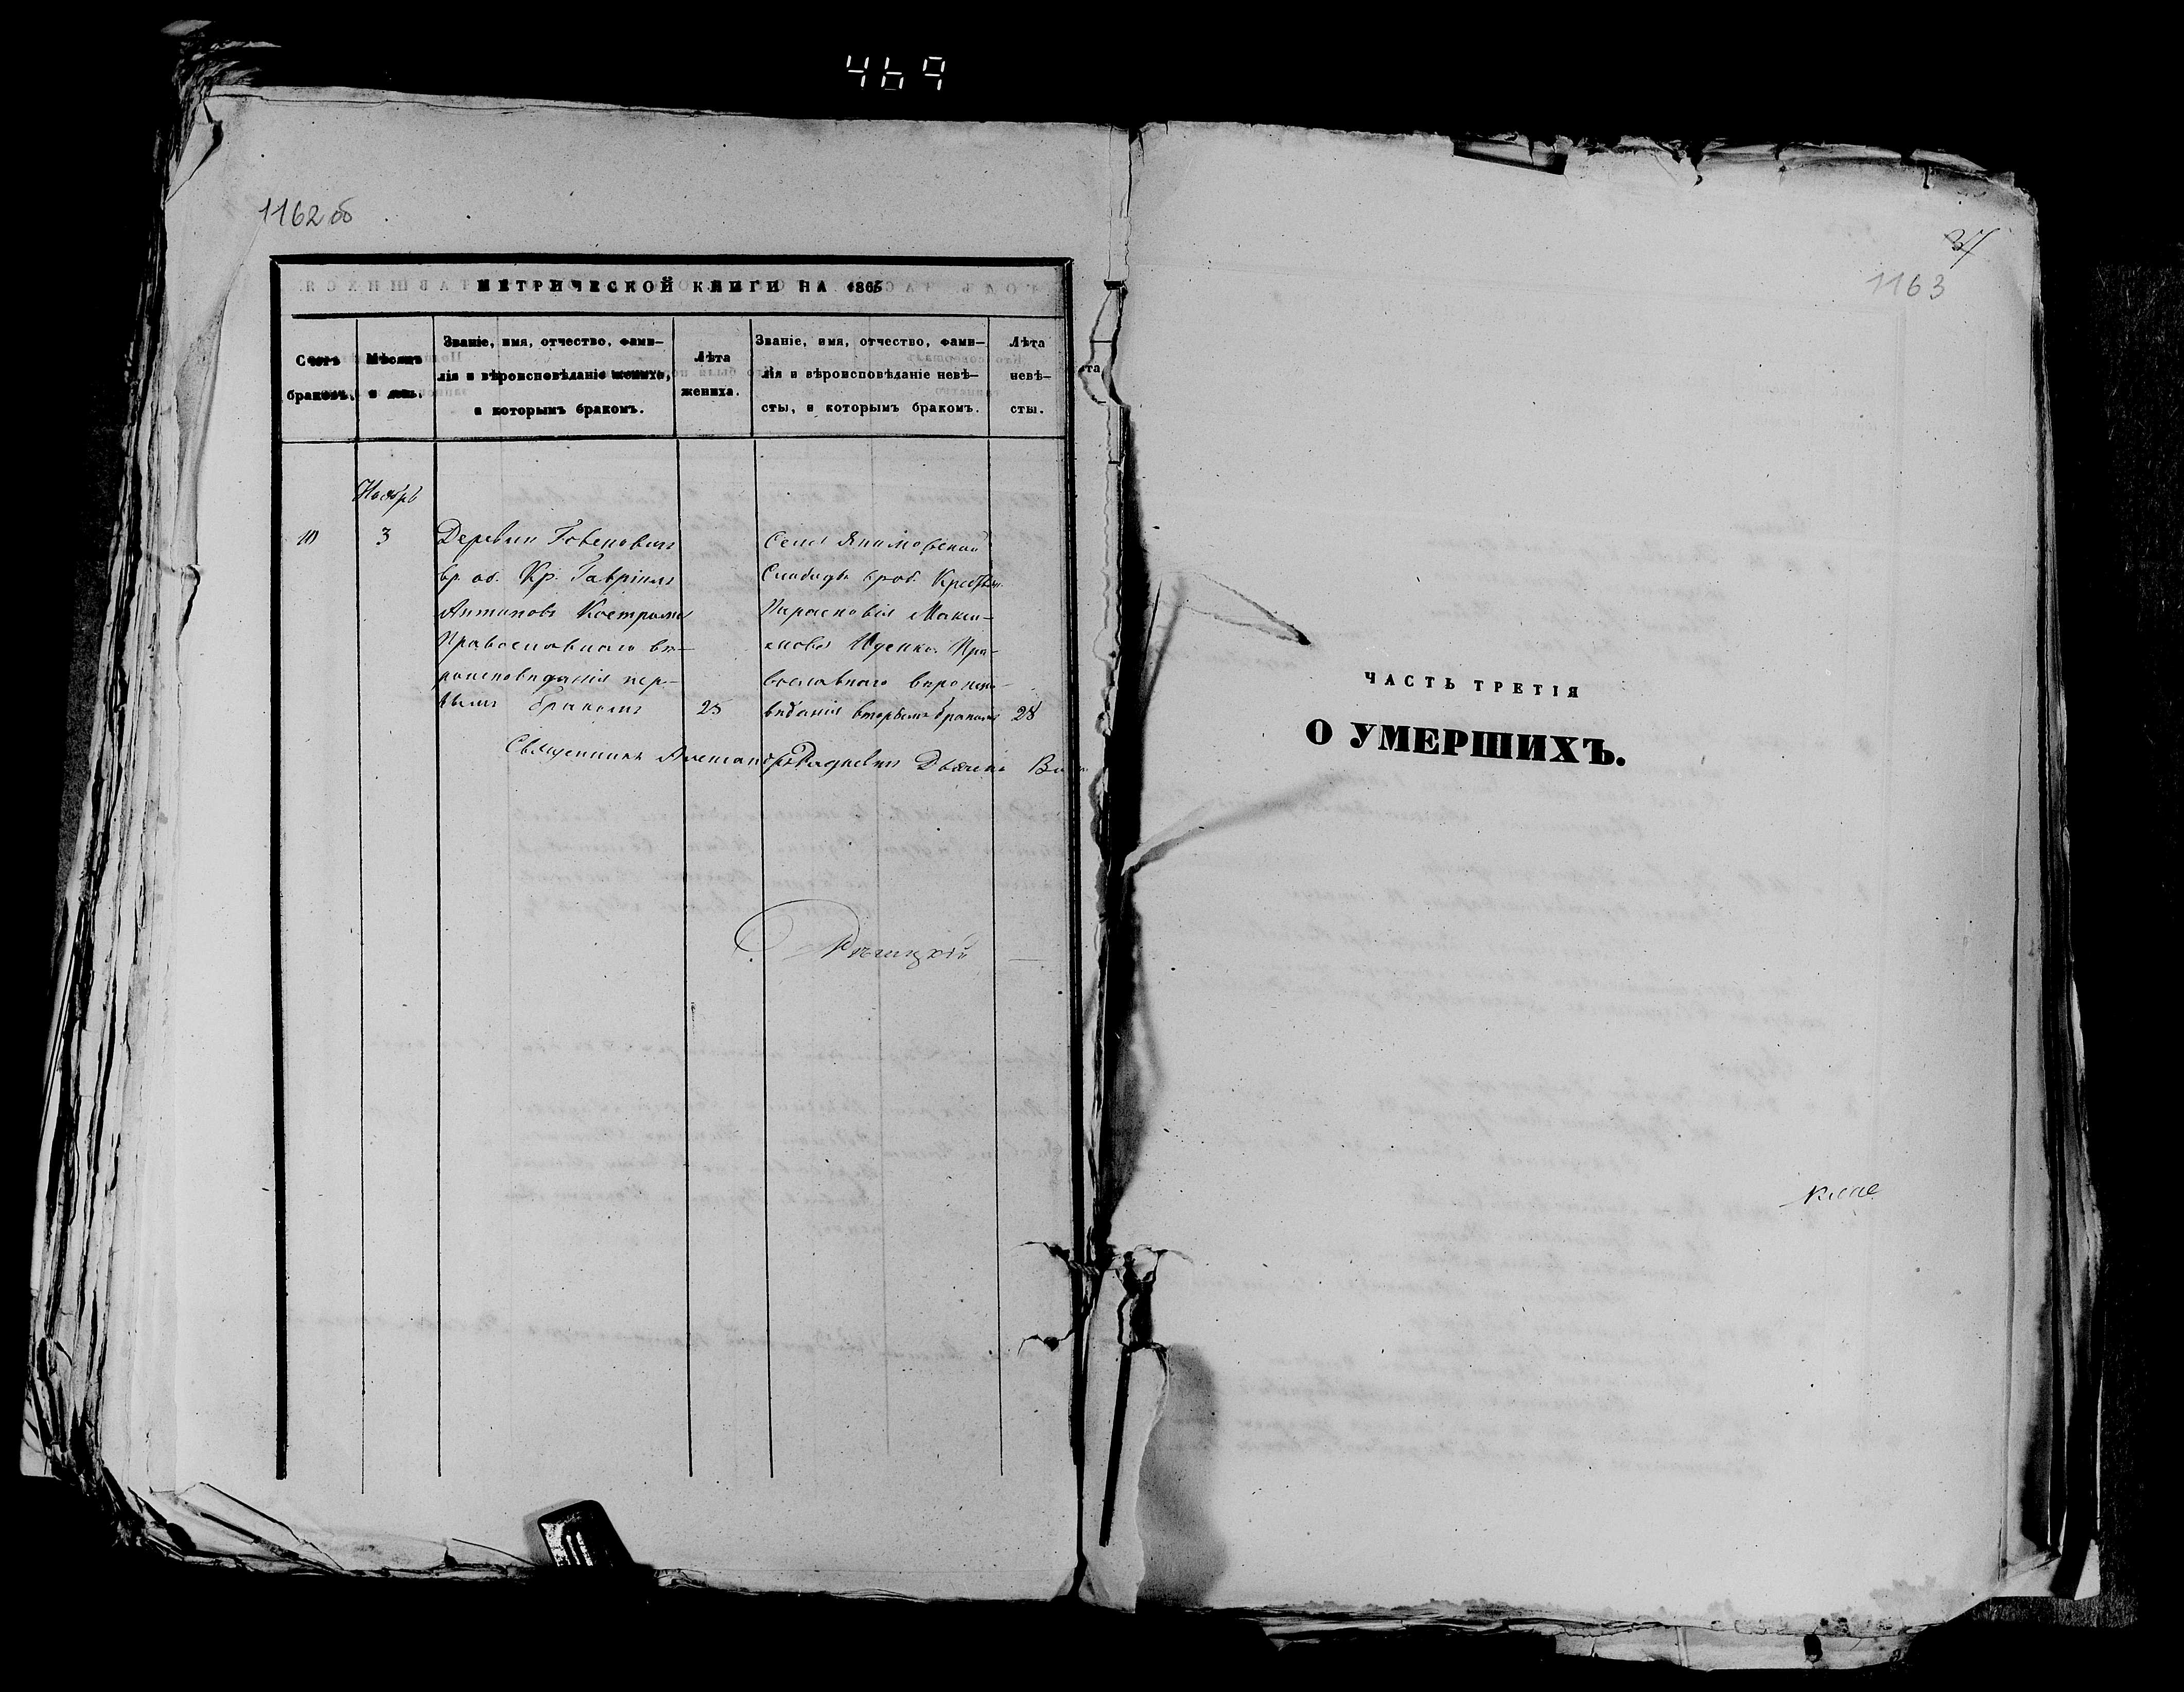 469
1162 об
МЕТРИЧЕСКОЙ КНИГИ НА 1865
Счетъ
браковъ.
Мѣсяцъ
и день.
Званіе, имя, отчество, фами-
лія и вѣроисповѣданіе жениха,
и которымъ бракомъ.
Лѣта
жениха.
Званіе, имя, отчество, фами-
лія и вѣроисповѣданіе невѣ-
сты, и которымъ бракомъ.
Лѣта
невѣ-
сты.
Ноябрь
10
3
Деревни
вр. об. Кр. Гавріилъ
Антиповъ
Православнаго вѣ-
роисповѣданія пер-
вымъ бракомъ
25
Села Якимовской
Слободы вроб. Крестьян.
Парасковія Макси-
мова Пра-
вославнаго вѣроиспо-
вѣданія вторымъ бракомъ
28
Священникъ Александръ
37
1163
ЧАСТЬ ТРЕТІЯ
О УМЕРШИХЪ.